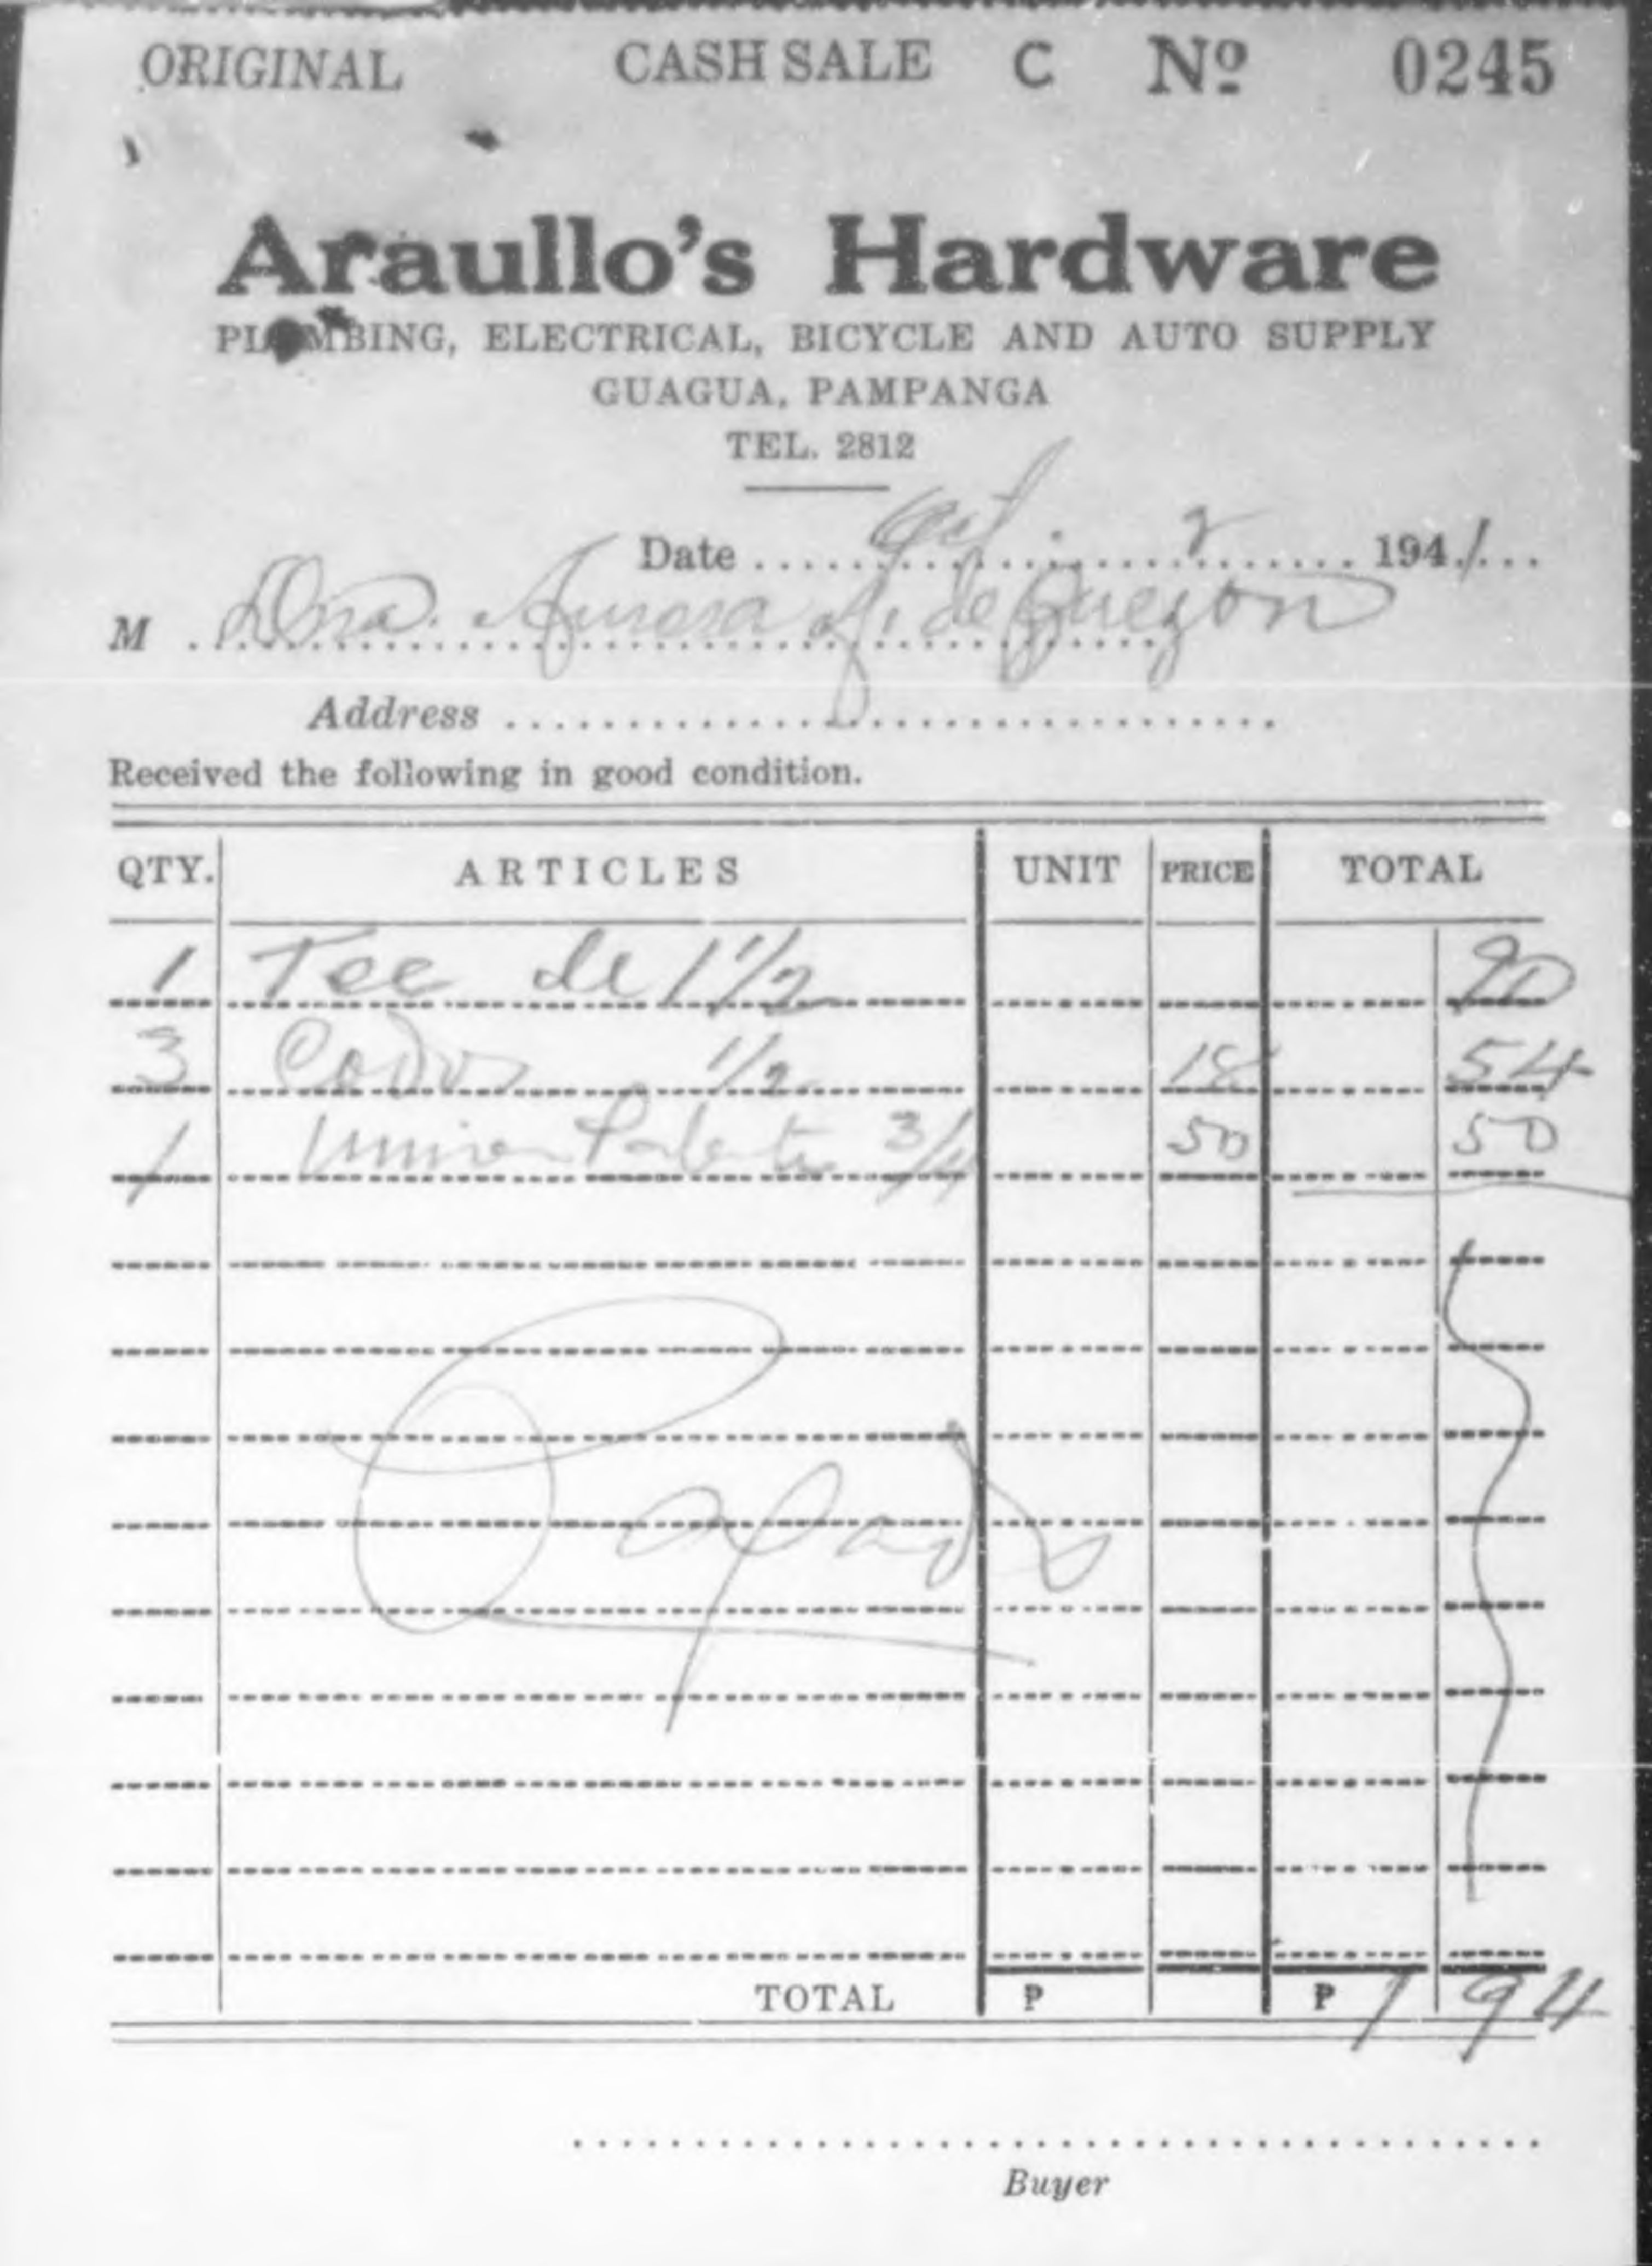 ORIGINAL CASH SALE C Nº 0245
Araullo's Hardware
PLUMBING, ELECTRICAL, BICYCLE AND AUTO SUPPLY
GUAGUA, PAMPANGA
TEL. 2812
Date ... Oct. 2 ... 1941
M ... Dna. Aurora A. de Quezon
Address ...
Received the following in good condition.
QTY. ARTICLES UNIT PRICE TOTAL
1 Tee de 1 1/2 90
3 Codos 1/2 18 54
1 Union Patente 3/4 50 50
Pagado
TOTAL ₱ ₱ 1 94
Buyer